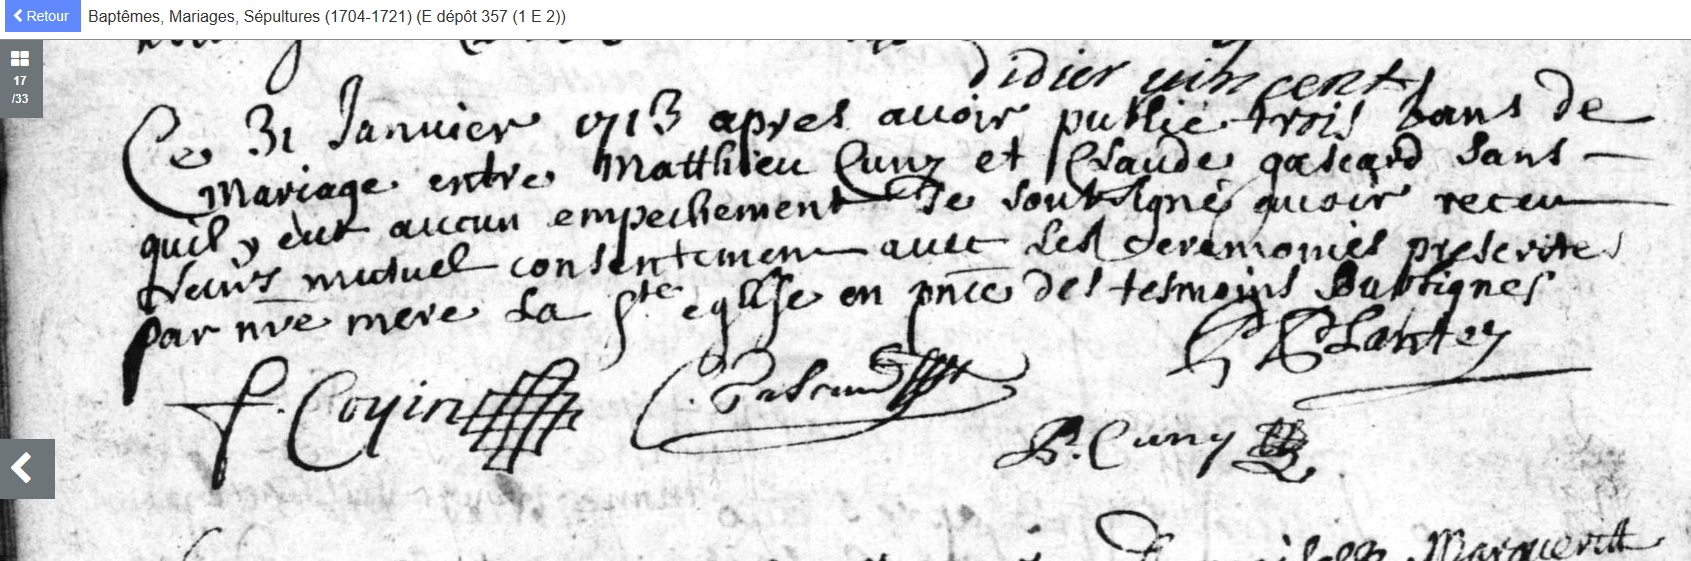 Retour
Baptêmes, Mariages, Sépultures (1704-1721) (E dépôt 357 (1 E 2))
17
/33
didier vincent
Ce 31 Januier 1713 apres auoir publié trois bans de
Mariage entre Matthieu Cuny et Claude gascard sans
quil y eut aucun empechement Je soubsigné auoir receu
leurs mutuel consentement auec les ceremonies prescrites
par nre mere la Ste eglise en pnce des tesmoins subsignes
f. Coyin
C.
Lantey
P. Cuny
Margueritte